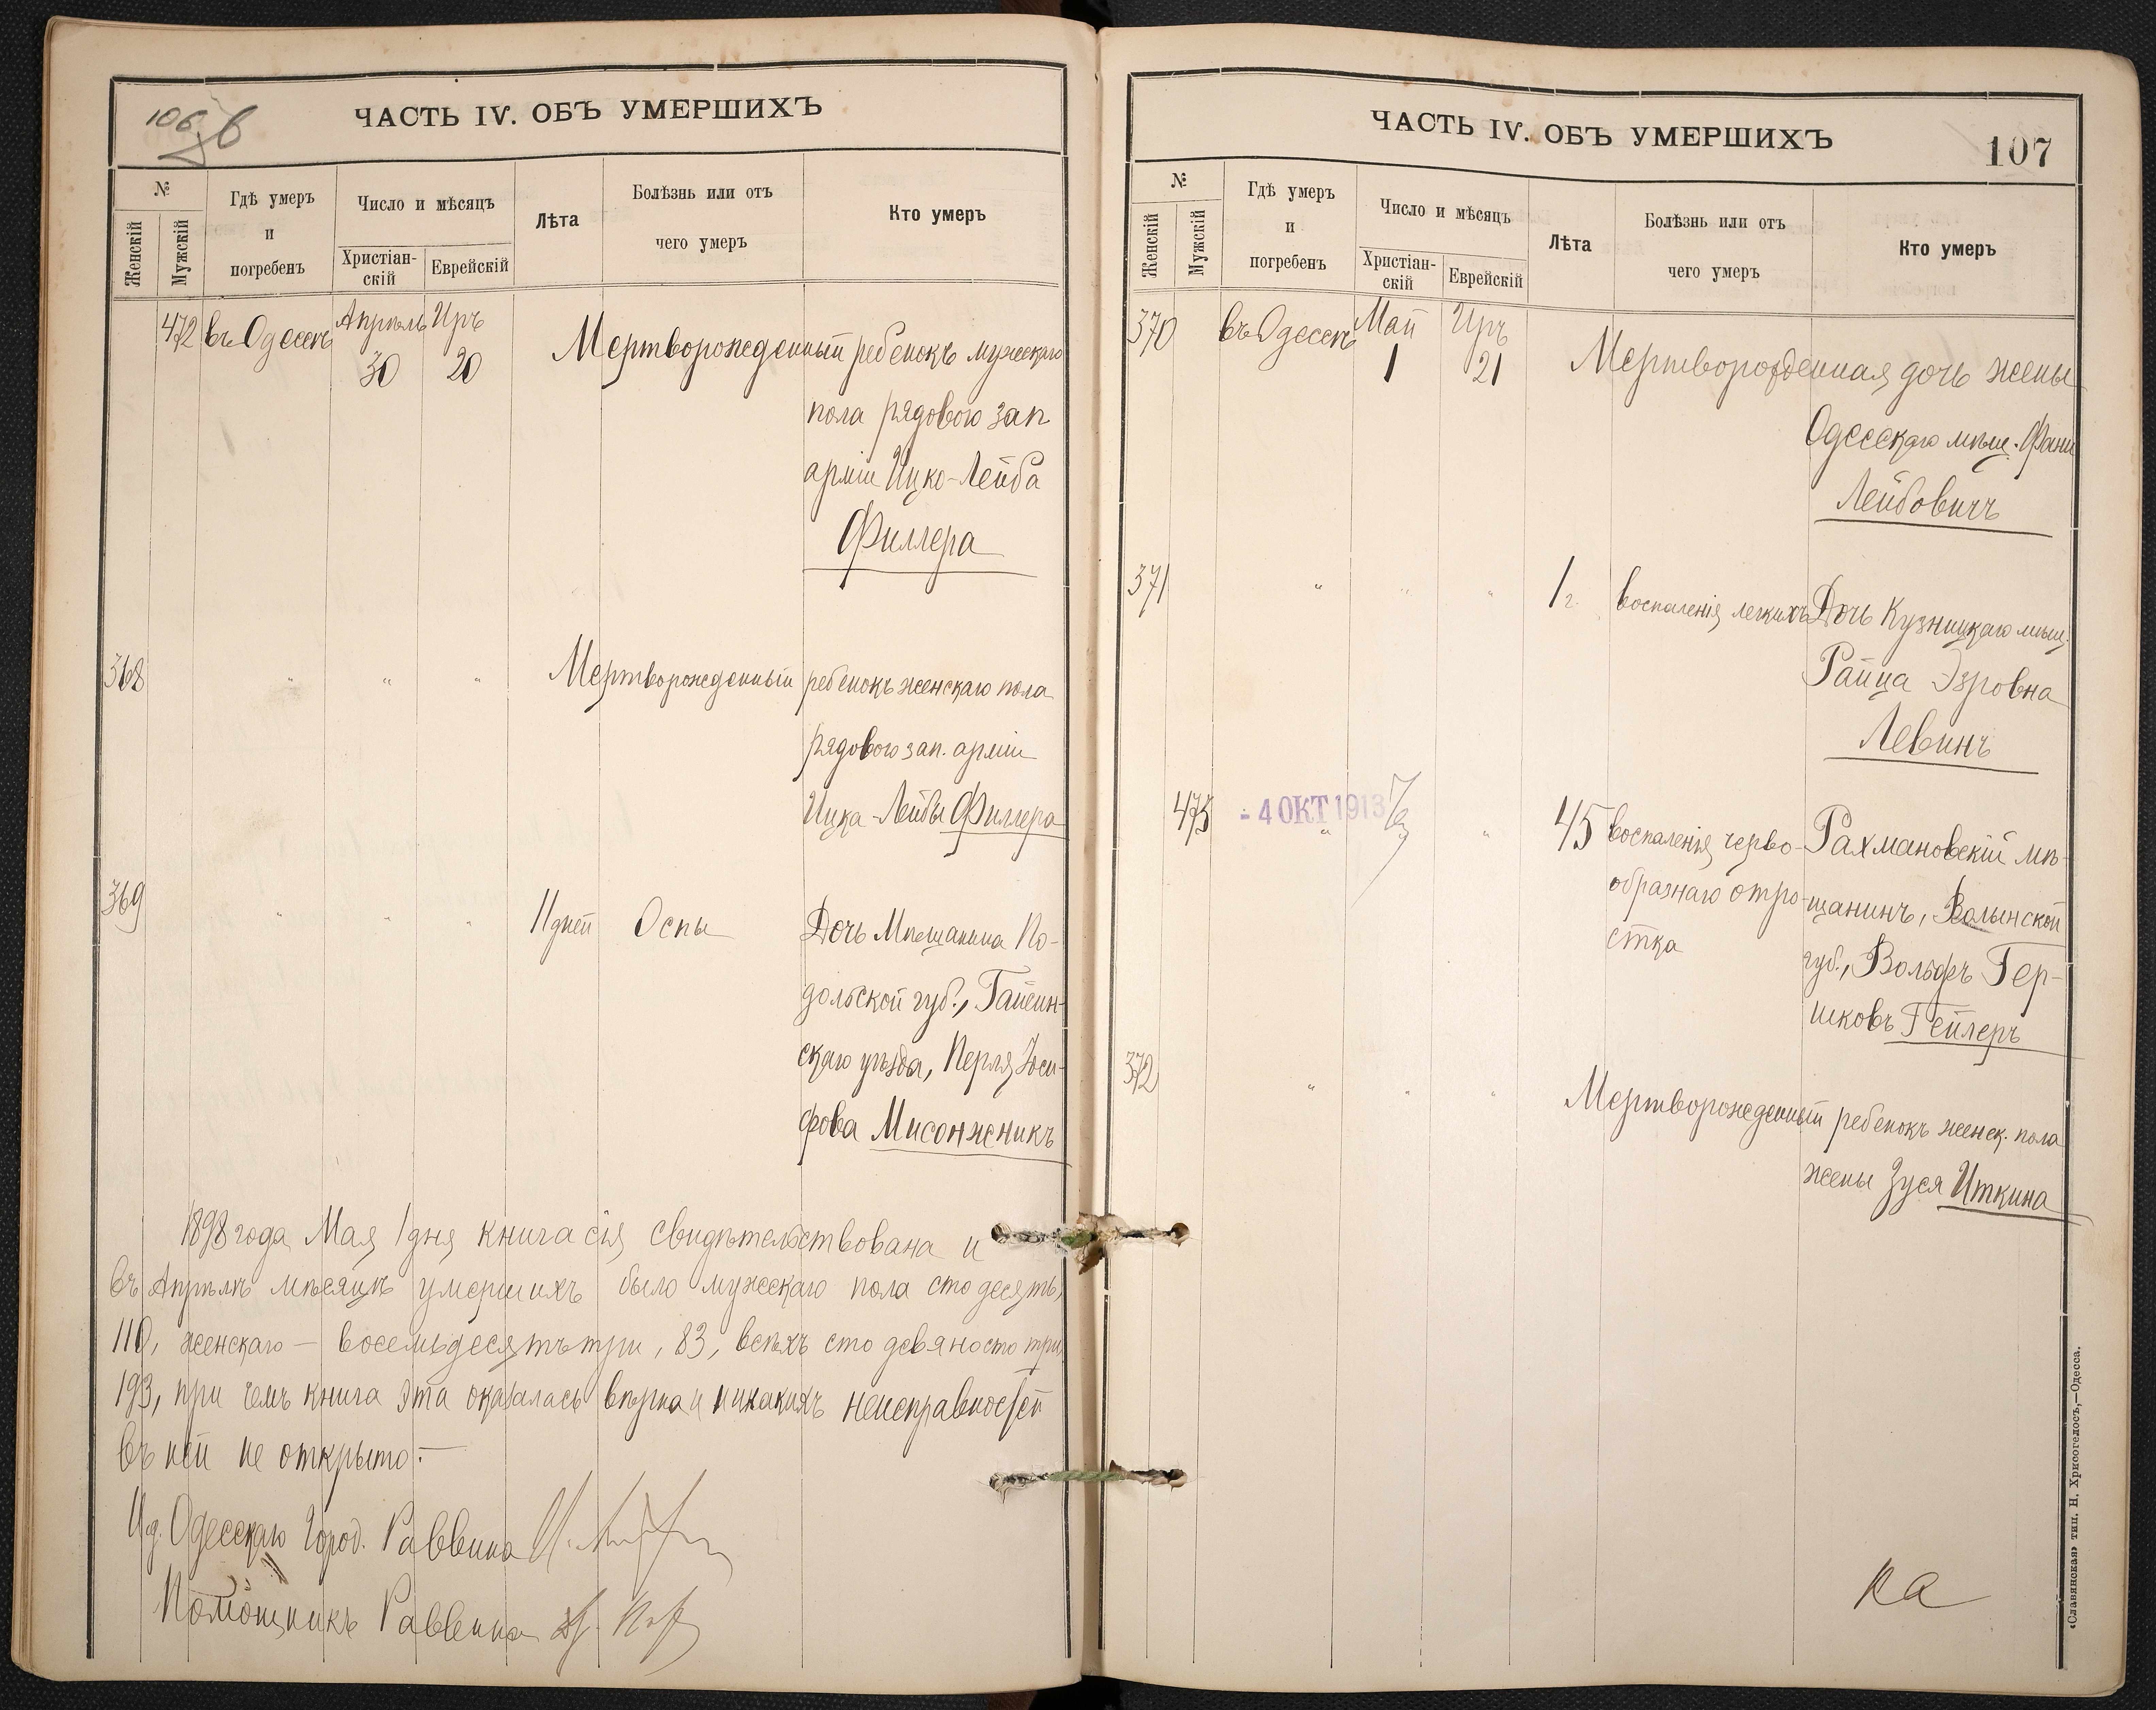 106 в
ЧАСТЬ IV. ОБЪ УМЕРШИХЪ
№
Женскій
Мужскій
Гдѣ умеръ
и
погребенъ
Число и мѣсяцъ
Христіан-
скій
Еврейскій
Лѣта
Болѣзнь или отъ
чего умеръ
Кто умеръ
472 въ Одессѣ Апрѣль Иръ
30 20
Мертворожденный ребенокъ мужскаго
пола рядового зап.
арміи Ицко-Лейба
Филлера
368 " " " Мертворожденный ребенокъ женскаго пола
рядового зап. арміи
Ицка-Лейбы Филлера
369 " " " 11 дней Оспы Дочь Мѣщанина По-
дольской губ., Гайсин-
скаго уѣзда, Перля Іоси-
фова Мисонжникъ
1898 года Мая 1 дня книга сія свидѣтельствована и
въ Апрѣлѣ мѣсяцѣ умершихъ было мужскаго пола сто десять,
110, женскаго – восемьдесятъ три, 83, всѣхъ сто девяносто три,
193, при чемъ книга эта оказалась вѣрна и никакихъ неисправностей
въ ней не открыто. –
И.д. Одесскаго Город. Раввина
Помощникъ Раввина
ЧАСТЬ IV. ОБЪ УМЕРШИХЪ
107
№
Женскій
Мужскій
Гдѣ умеръ
и
погребенъ
Число и мѣсяцъ
Христіан-
скій
Еврейскій
Лѣта
Болѣзнь или отъ
чего умеръ
Кто умеръ
370 въ Одессѣ Май Иръ
1 21
Мертворожденная дочь жены
Одесскаго мѣщ. Фани
Лейбовичъ
371 " " " 1 г. воспаленія легкихъ Дочь Кузницкаго мѣщ.
Райца Эзровна
Левинъ
473 - 4 ОКТ 1913 " " 45 воспаленія черво- Рахмановскій мѣ-
образнаго отро- щанинъ, Волынской
стка губ., Вольфъ Гер-
шковъ Гейлеръ
372 " " " Мертворожденный ребенокъ женск. пола
жены Зуся Иткина
«Славянская» тип. Н. Хрисогелосъ,—Одесса.